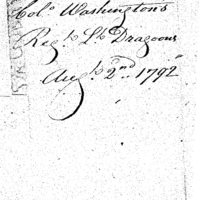 Colo. Washington's
Regt. Lt. Dragoons
Augt. 2nd 1792